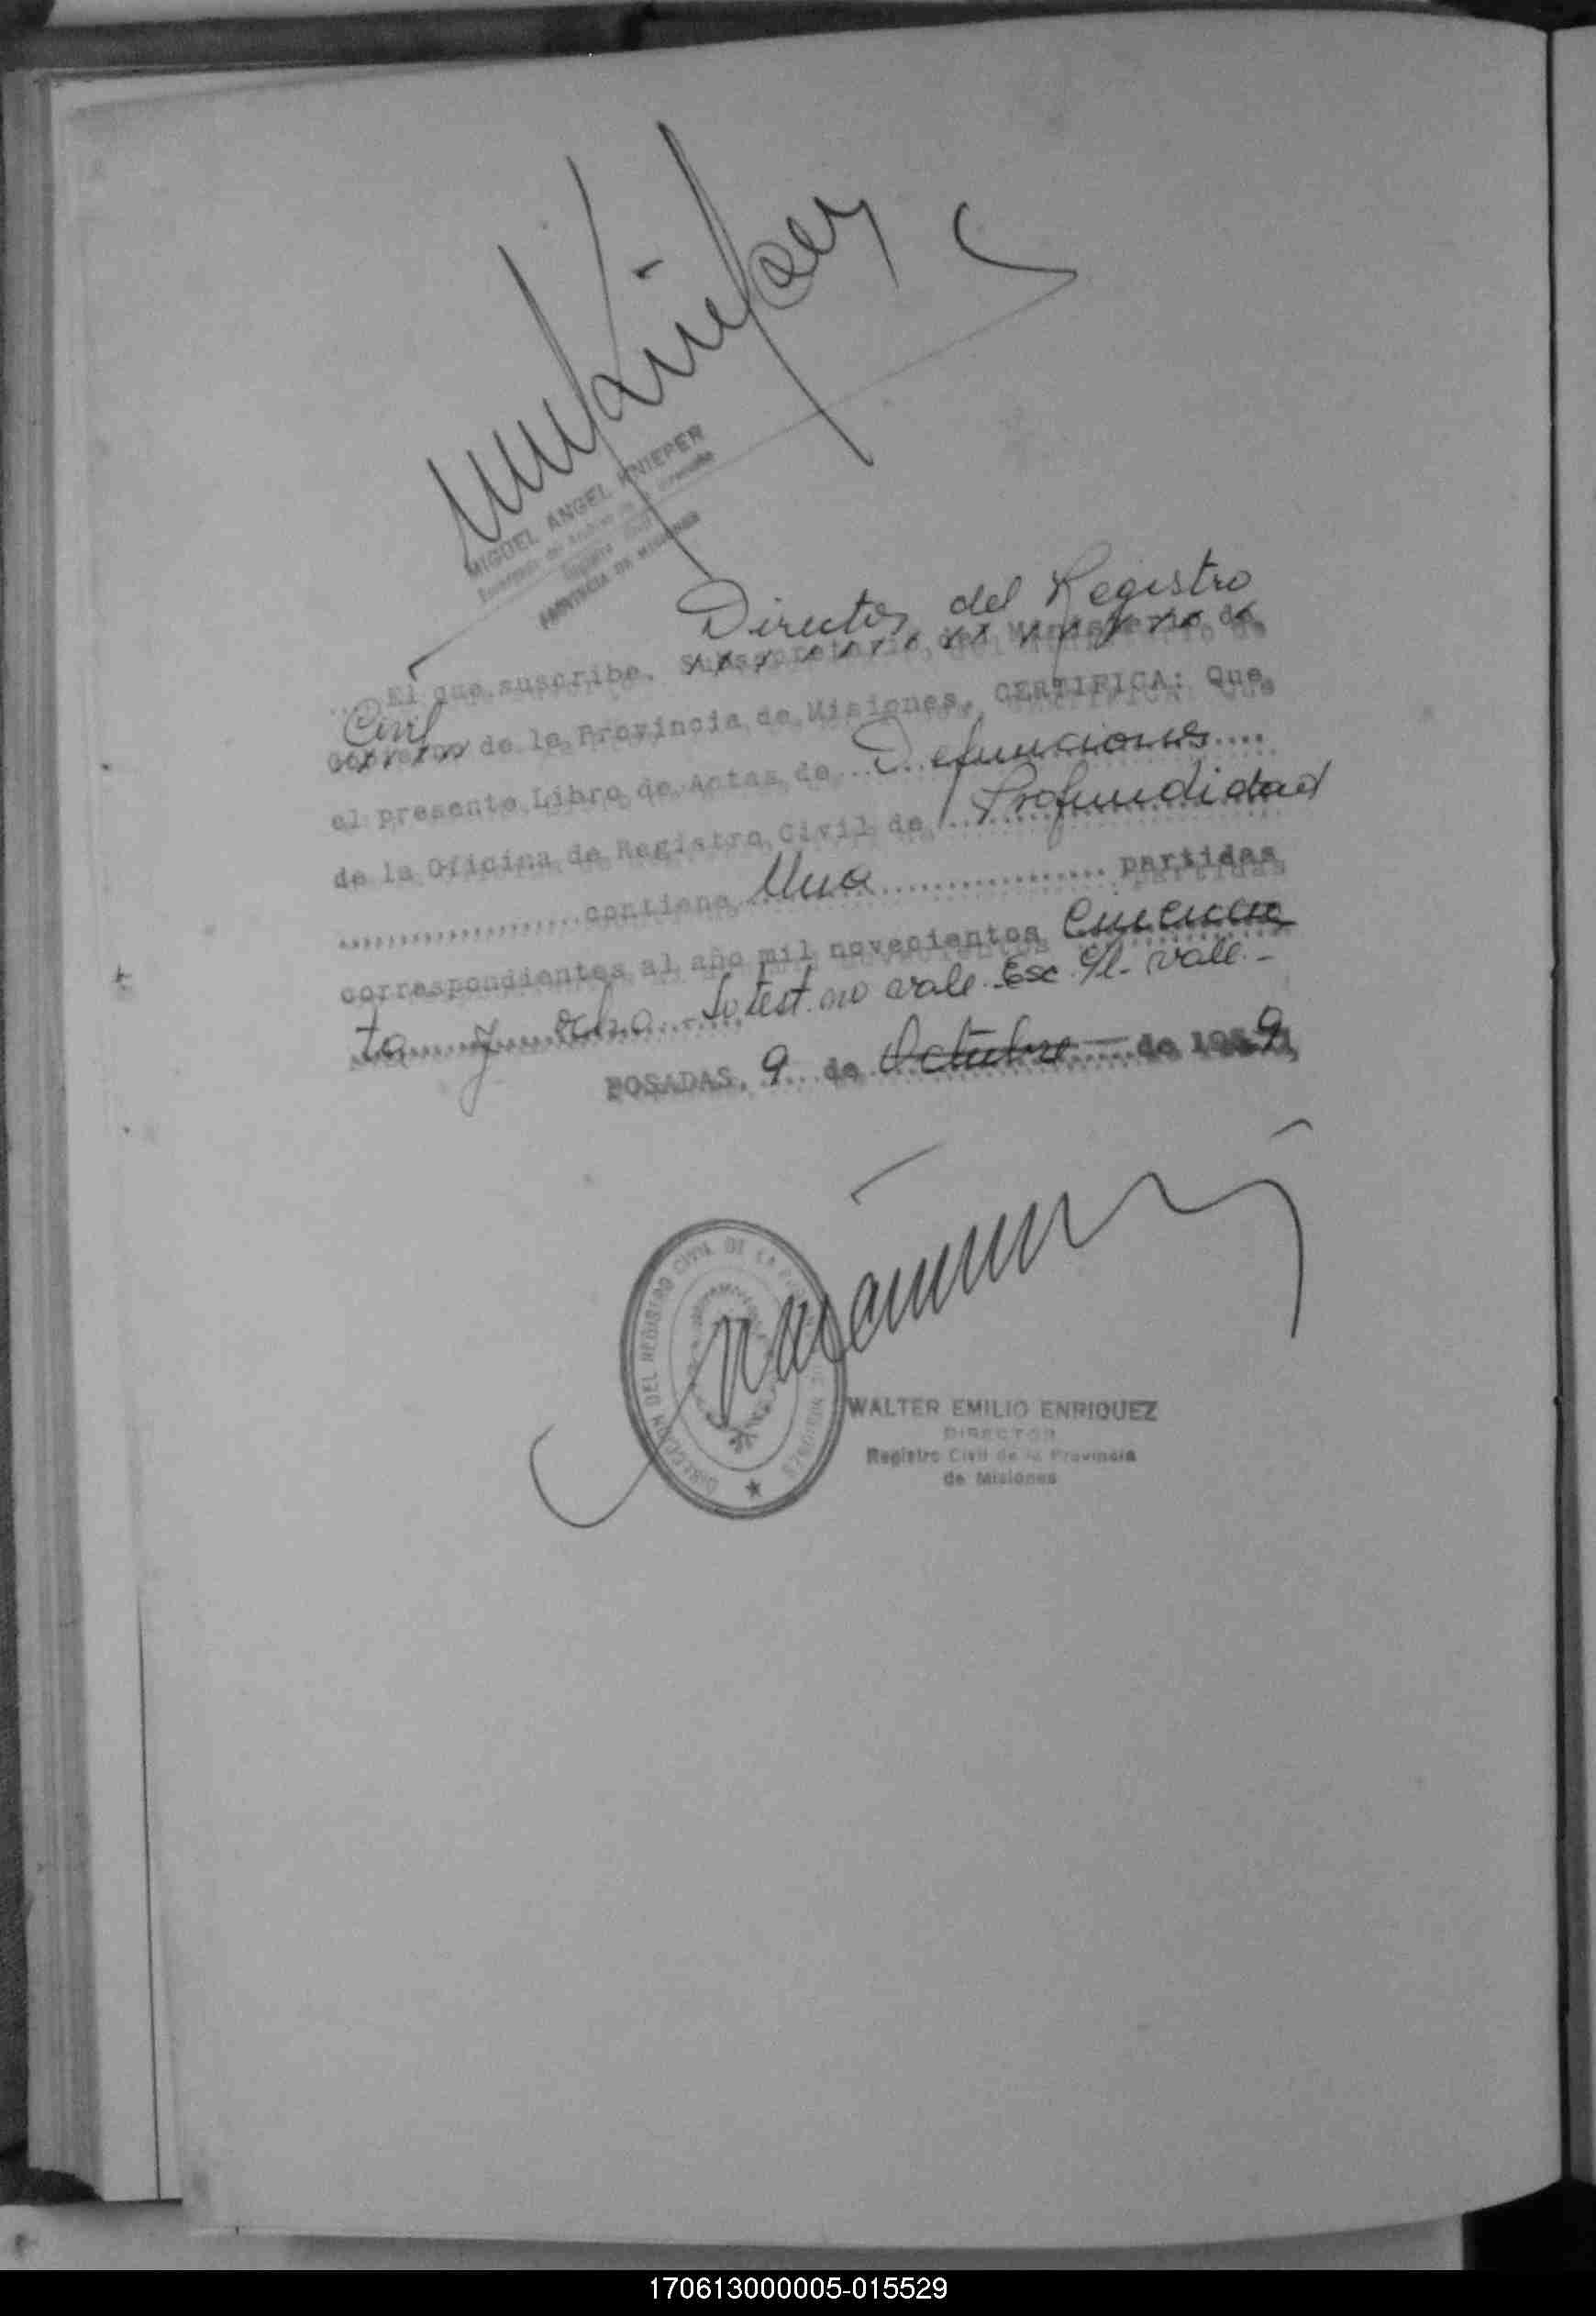 MIGUEL ANGEL KNIEPER
PROVINCIA DE MISIONES
Director del Registro
...El que suscribe, Subsecretario del Ministerio de
Civil
Gobierno de la Provincia de Misiones, CERTIFICA: Que
el presente Libro de Actas de ... Defunciones ....
de la Oficina de Registro Civil de ... Profundidad
.................... contiene Una .................. partidas
correspondientes al año mil novecientos Cincuen
ta y ocho. Lo test. no vale. Esc. s/l. vale.-
POSADAS, 9 de Octubre — de 1959
DIRECCION DEL REGISTRO CIVIL DE LA MISIONES
WALTER EMILIO ENRIQUEZ
DIRECTOR
Registro Civil de la Provincia
de Misiones
170613000005-015529